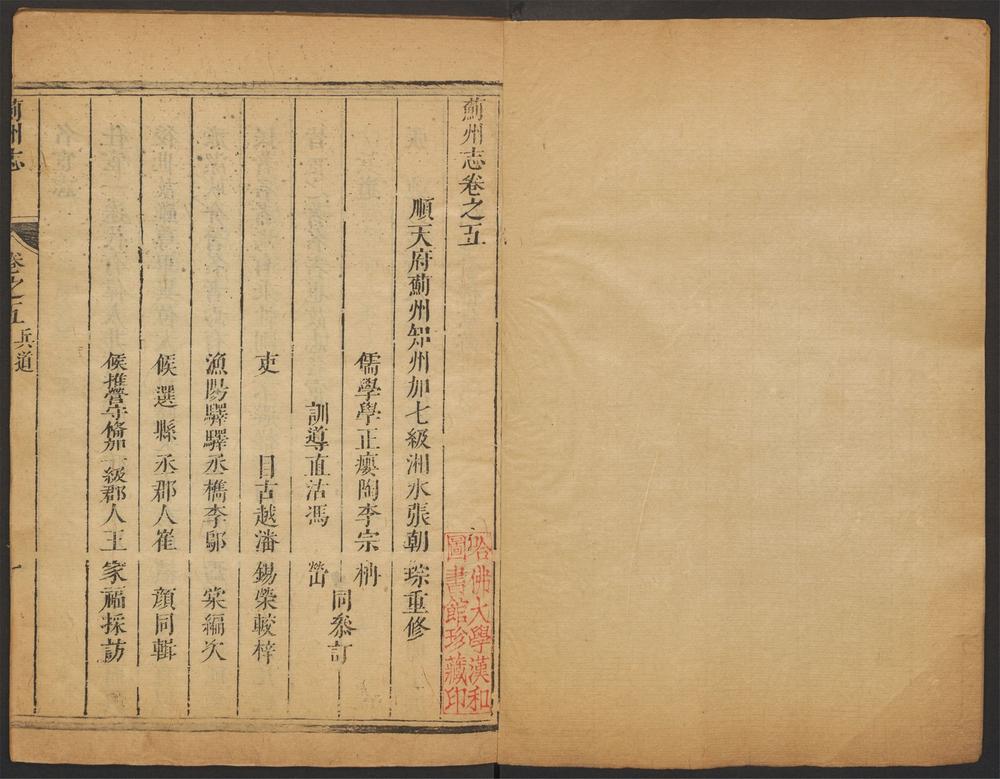 薊州志卷之五
順天府薊州知州加七級湘水張朝琮重修
儒學學正廮陶李宗
訓導直沽馮
同叅訂
吏目古越潘錫榮較梓
漁陽驛驛丞檇李鄔棠編次
候選縣丞郡人崔顔同輯
候推營守俻加一級郡人王家福採訪
薊州志
卷之五 兵道
一
哈佛大學漢和
圖書館珍藏印